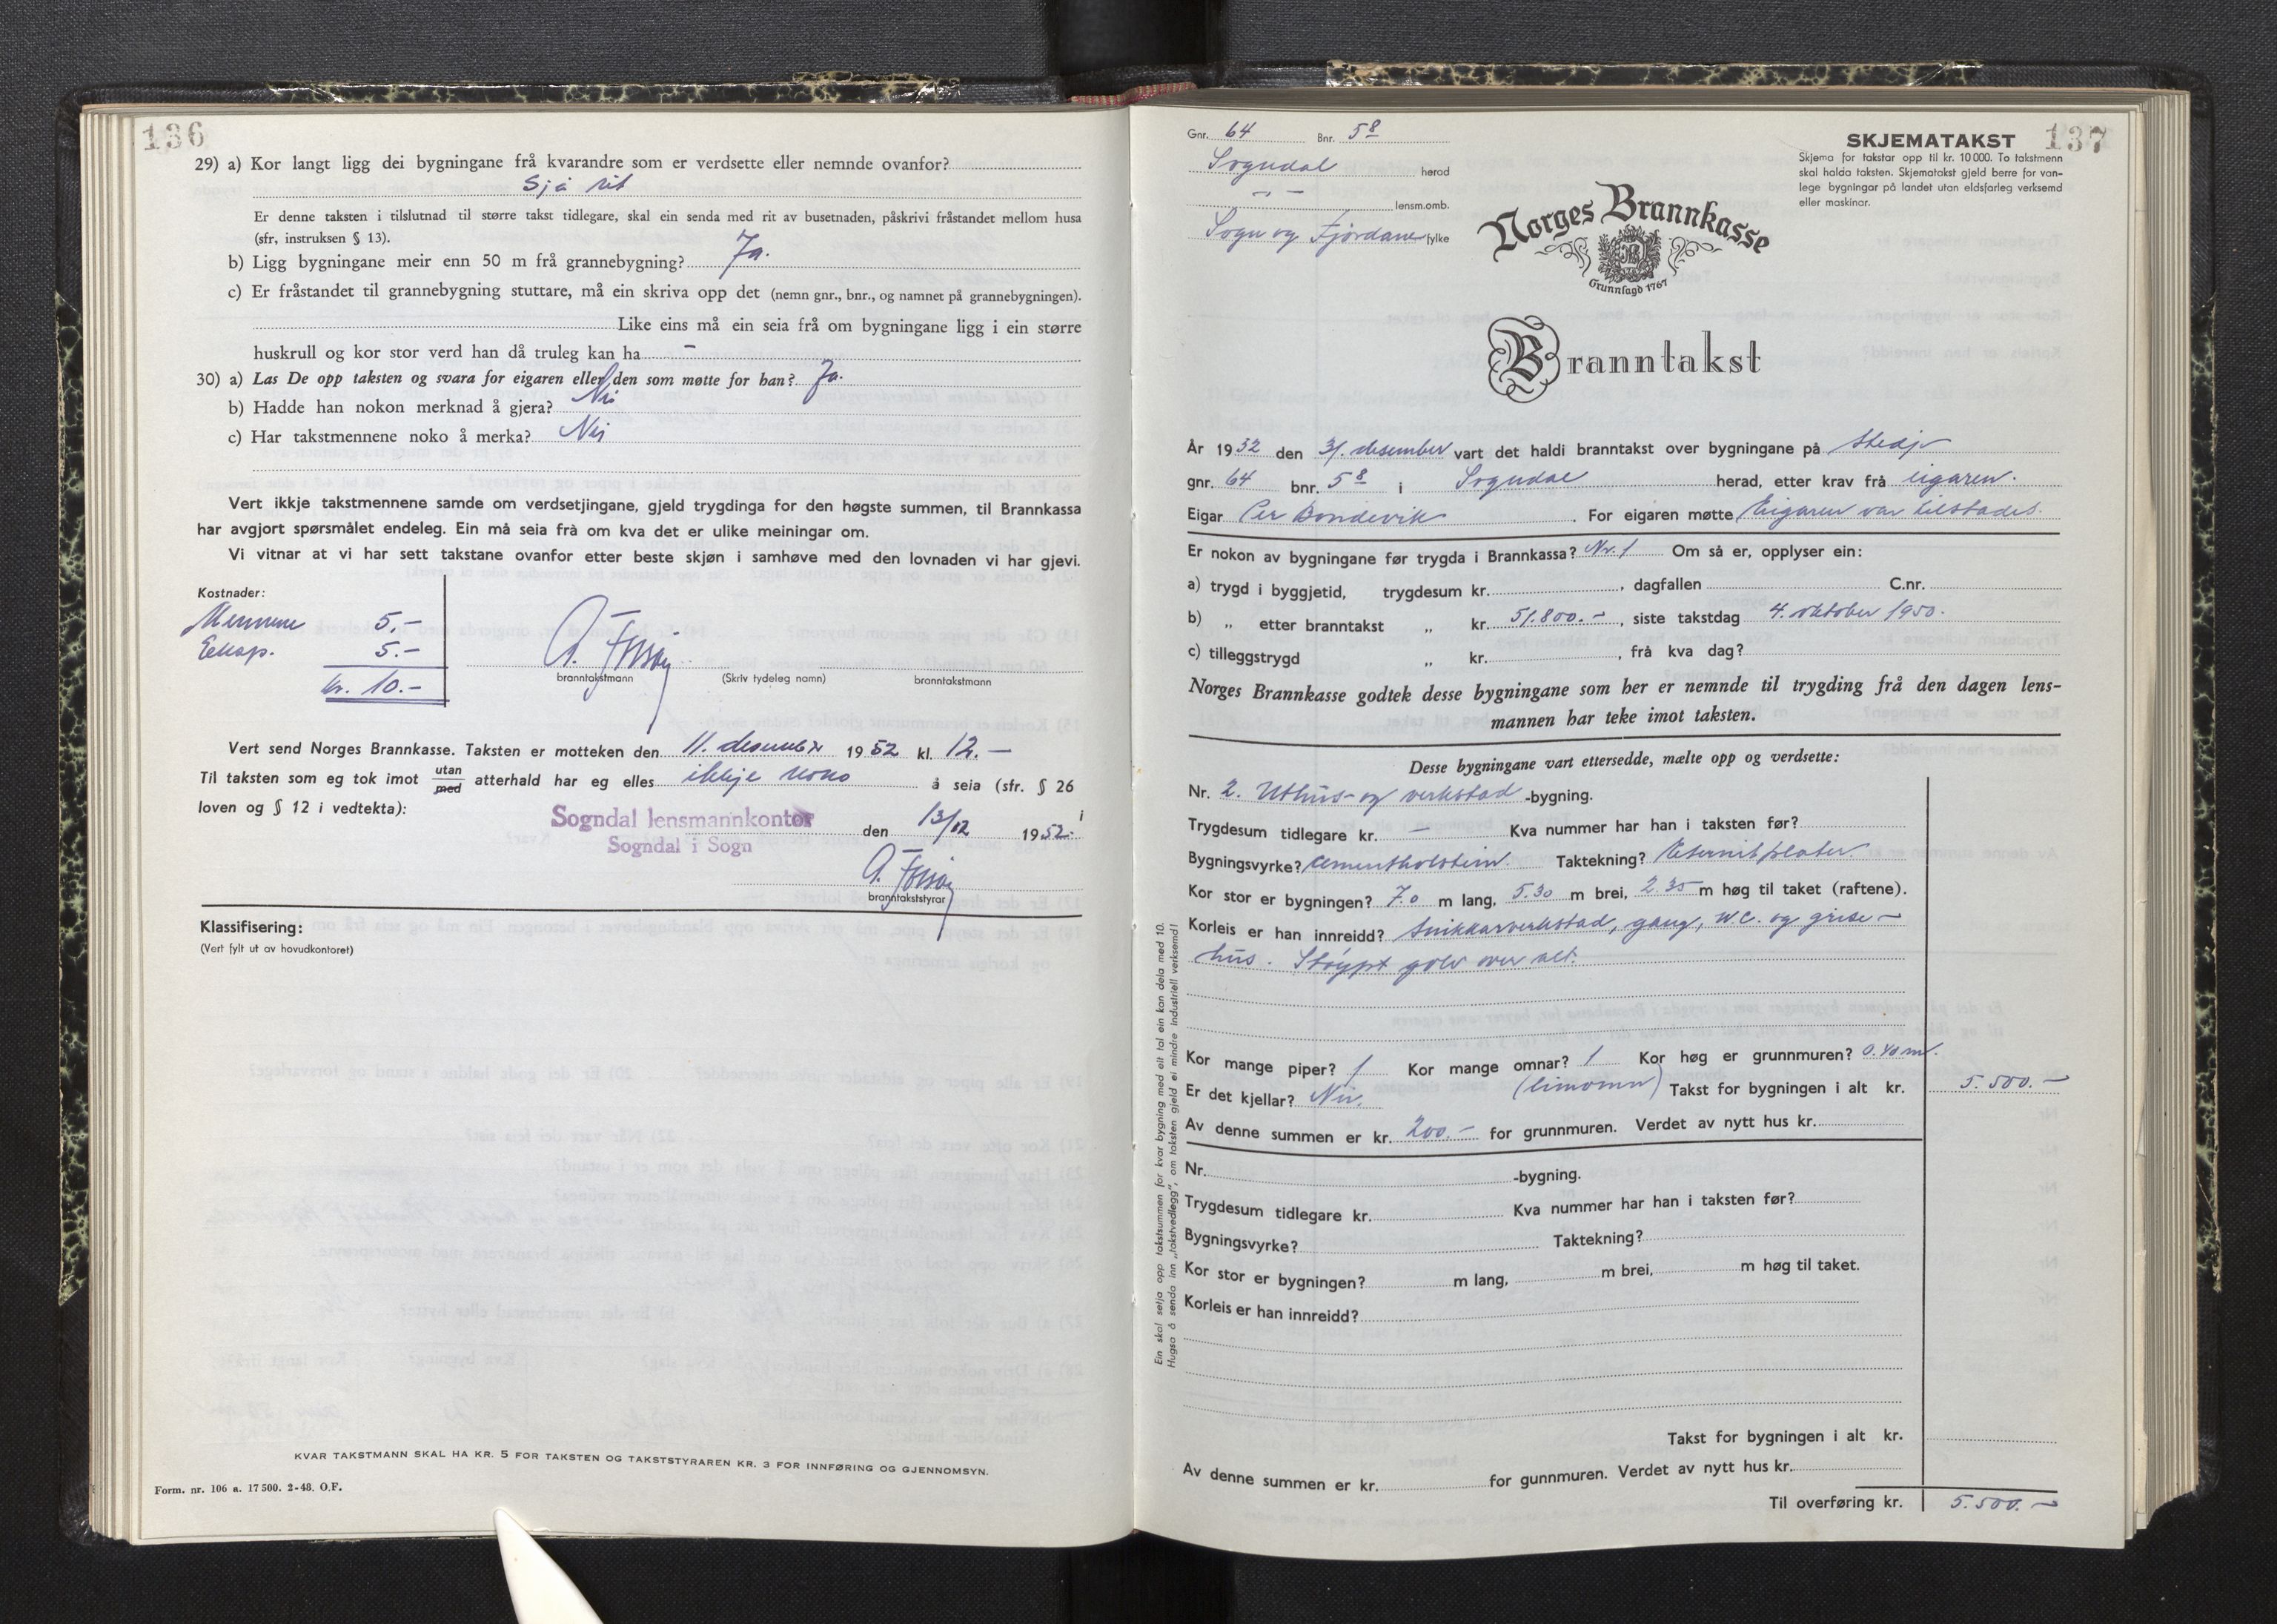 136
29) a) Kor langt ligg dei bygningane frå kvarandre som er verdsette eller nemnde ovanfor?
Sjå rit
Er denne taksten i tilslutnad til større takst tidlegare, skal ein senda med rit av busetnaden, påskrivi fråstandet mellom husa
(sfr, instruksen § 13).
b) Ligg bygningane meir enn 50 m frå grannebygning? Ja.
c) Er fråstandet til grannebygning stuttare, må ein skriva opp det (nemn gnr., bnr., og namnet på grannebygningen).
Like eins må ein seia frå om bygningane ligg i ein større
huskrull og kor stor verd han då truleg kan ha –
30) a) Las De opp taksten og svara for eigaren eller den som møtte for han? Ja.
b) Hadde han nokon merknad å gjera? Nei
c) Har takstmennene noko å merka? Nei
Vert ikkje takstmennene samde om verdsetjingane, gjeld trygdinga for den høgste summen, til Brannkassa
har avgjort spørsmålet endeleg. Ein må seia frå om kva det er ulike meiningar om.
Vi vitnar at vi har sett takstane ovanfor etter beste skjøn i samhøve med den lovnaden vi har gjevi.
Kostnader:
Mennene 5.-
Eksp. 5.-
kr. 10.-
branntakstmann (Skriv tydeleg namn) branntakstmann
Vert send Norges Brannkasse. Taksten er motteken den 11. desember 1952 kl. 12.—
Til taksten som eg tok imot utan
med atterhald har eg elles ikkje noko å seia (sfr. § 26
loven og § 12 i vedtekta):
Sogndal lensmannkontor
Sogndal i Sogn
den 13/12 1952. i
branntakststyrar
Klassifisering:
(Vert fylt ut av hovudkontoret)
KVAR TAKSTMANN SKAL HA KR. 5 FOR TAKSTEN OG TAKSTSTYRAREN KR. 3 FOR INNFØRING OG GJENNOMSYN.
Form. nr. 106 a. 17 500. 2-48. O.F.
Gnr. 64 Bnr. 58
Sogndal herod
— — lensm.omb.
Sogn og Fjordane fylke
SKJEMATAKST 137
Skjema for takstar opp til kr. 10 000. To takstmenn
skal halda taksten. Skjematakst gjeld berre for van-
lege bygningar på landet utan eldsfarleg verksemd
eller maskinar.
Norges Brannkasse
Grunnlagd 1767
Branntakst
År 1952 den 3/. desember vart det haldi branntakst over bygningane på Stedje
gnr. 64 bnr. 58 i Sogndal herad, etter krav frå eigaren.
Eigar Per Bondevik. For eigaren møtte Eigaren var tilstades.
Er nokon av bygningane før trygda i Brannkassa? Nr. 1 Om så er, opplyser ein:
a) trygd i byggjetid, trygdesum kr. , dagfallen C.nr.
b) „ etter branntakst „ kr. 51.800.- , siste takstdag 4. oktober 1950.
c) tilleggstrygd „ kr. , frå kva dag?
Norges Brannkasse godtek desse bygningane som her er nemnde til trygding frå den dagen lens-
mannen har teke imot taksten.
Desse bygningane vart ettersedde, mælte opp og verdsette:
Nr. 2. Uthus- og verkstad -bygning.
Trygdesum tidlegare kr. — Kva nummer har han i taksten før?
Bygningsvyrke? Cementholstein. Taktekning? Eternitplater.
Kor stor er bygningen? 7.0 m lang, 5.30 m brei, 2.35 m høg til taket (raftene).
Korleis er han innreidd? Snikkarverkstad, gang, W.C. og grise-
hus. Støypt golv over alt.
Kor mange piper? 1 Kor mange omnar? 1 Kor høg er grunnmuren? 0.40 m.
Er det kjellar? Nei. (limomn) Takst for bygningen i alt kr. 5.500.—
Av denne summen er kr. 200.- for grunnmuren. Verdet av nytt hus kr.
Nr. -bygning.
Trygdesum tidlegare kr. Kva nummer har han i taksten før?
Bygningsvyrke? Taktekning?
Kor stor er bygningen? m lang, m brei, m høg til taket.
Korleis er han innreidd?
Takst for bygningen i alt kr.
Av denne summen er kr. for gunnmuren. Verdet av nytt hus kr.
Til overføring kr. 5.500.—
Ein skal setja opp takstsummen for kvar bygning med eit tal ein kan dela med 10.
Hugsa å senda inn „takstvedlegg", om taksten gjeld ei mindre industriell verksemd!